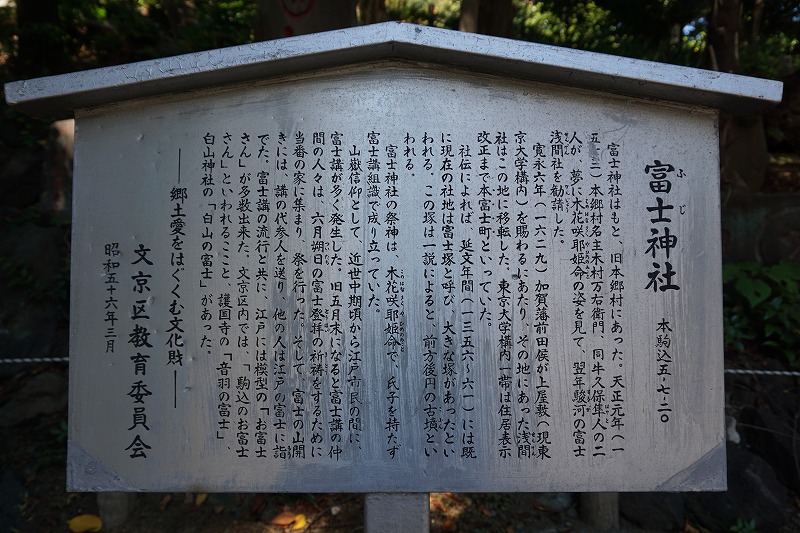 富士神社
ふじ
本駒込五-七-二〇
富士神社はもと、旧本郷村にあった。天正元年（一
五七三）本郷村名主木村万右衛門、同牛久保隼人の二
人が、夢に木花咲耶姫命の姿を見て、翌年駿河の富士
浅間社を勧請した。
寛永六年（一六二九）加賀藩前田侯が上屋敷（現東
京大学構内）を賜わるにあたり、その地にあった浅間
社はこの地に移転した。東京大学構内一帯は住居表示
改正まで本富士町といっていた。
社伝によれば、延文年間（一三五六～六一）には既
に現在の社地は富士塚と呼び、大きな塚があったとい
われる。この塚は一説によると、前方後円の古墳とい
われる。
富士神社の祭神は、木花咲耶姫命で、氏子を持たず
富士講組織で成り立っていた。
山嶽信仰として、近世中期頃から江戸市民の間に、
富士講が多く発生した。旧五月末になると富士講の仲
間の人々は、六月朔日の富士登拝の祈祷をするために
当番の家に集まり、祭を行った。そして、富士の山開
きには、講の代参人を送り、他の人は江戸の富士に詣
でた。富士講の流行と共に、江戸には模型の「お富士
さん」が多数出来た。文京区内では、「駒込のお富士
さん」といわれるここと、護国寺の「音羽の富士」、
白山神社の「白山の富士」があった。
――郷土愛をはぐくむ文化財――
文京区教育委員会
昭和五十六年三月